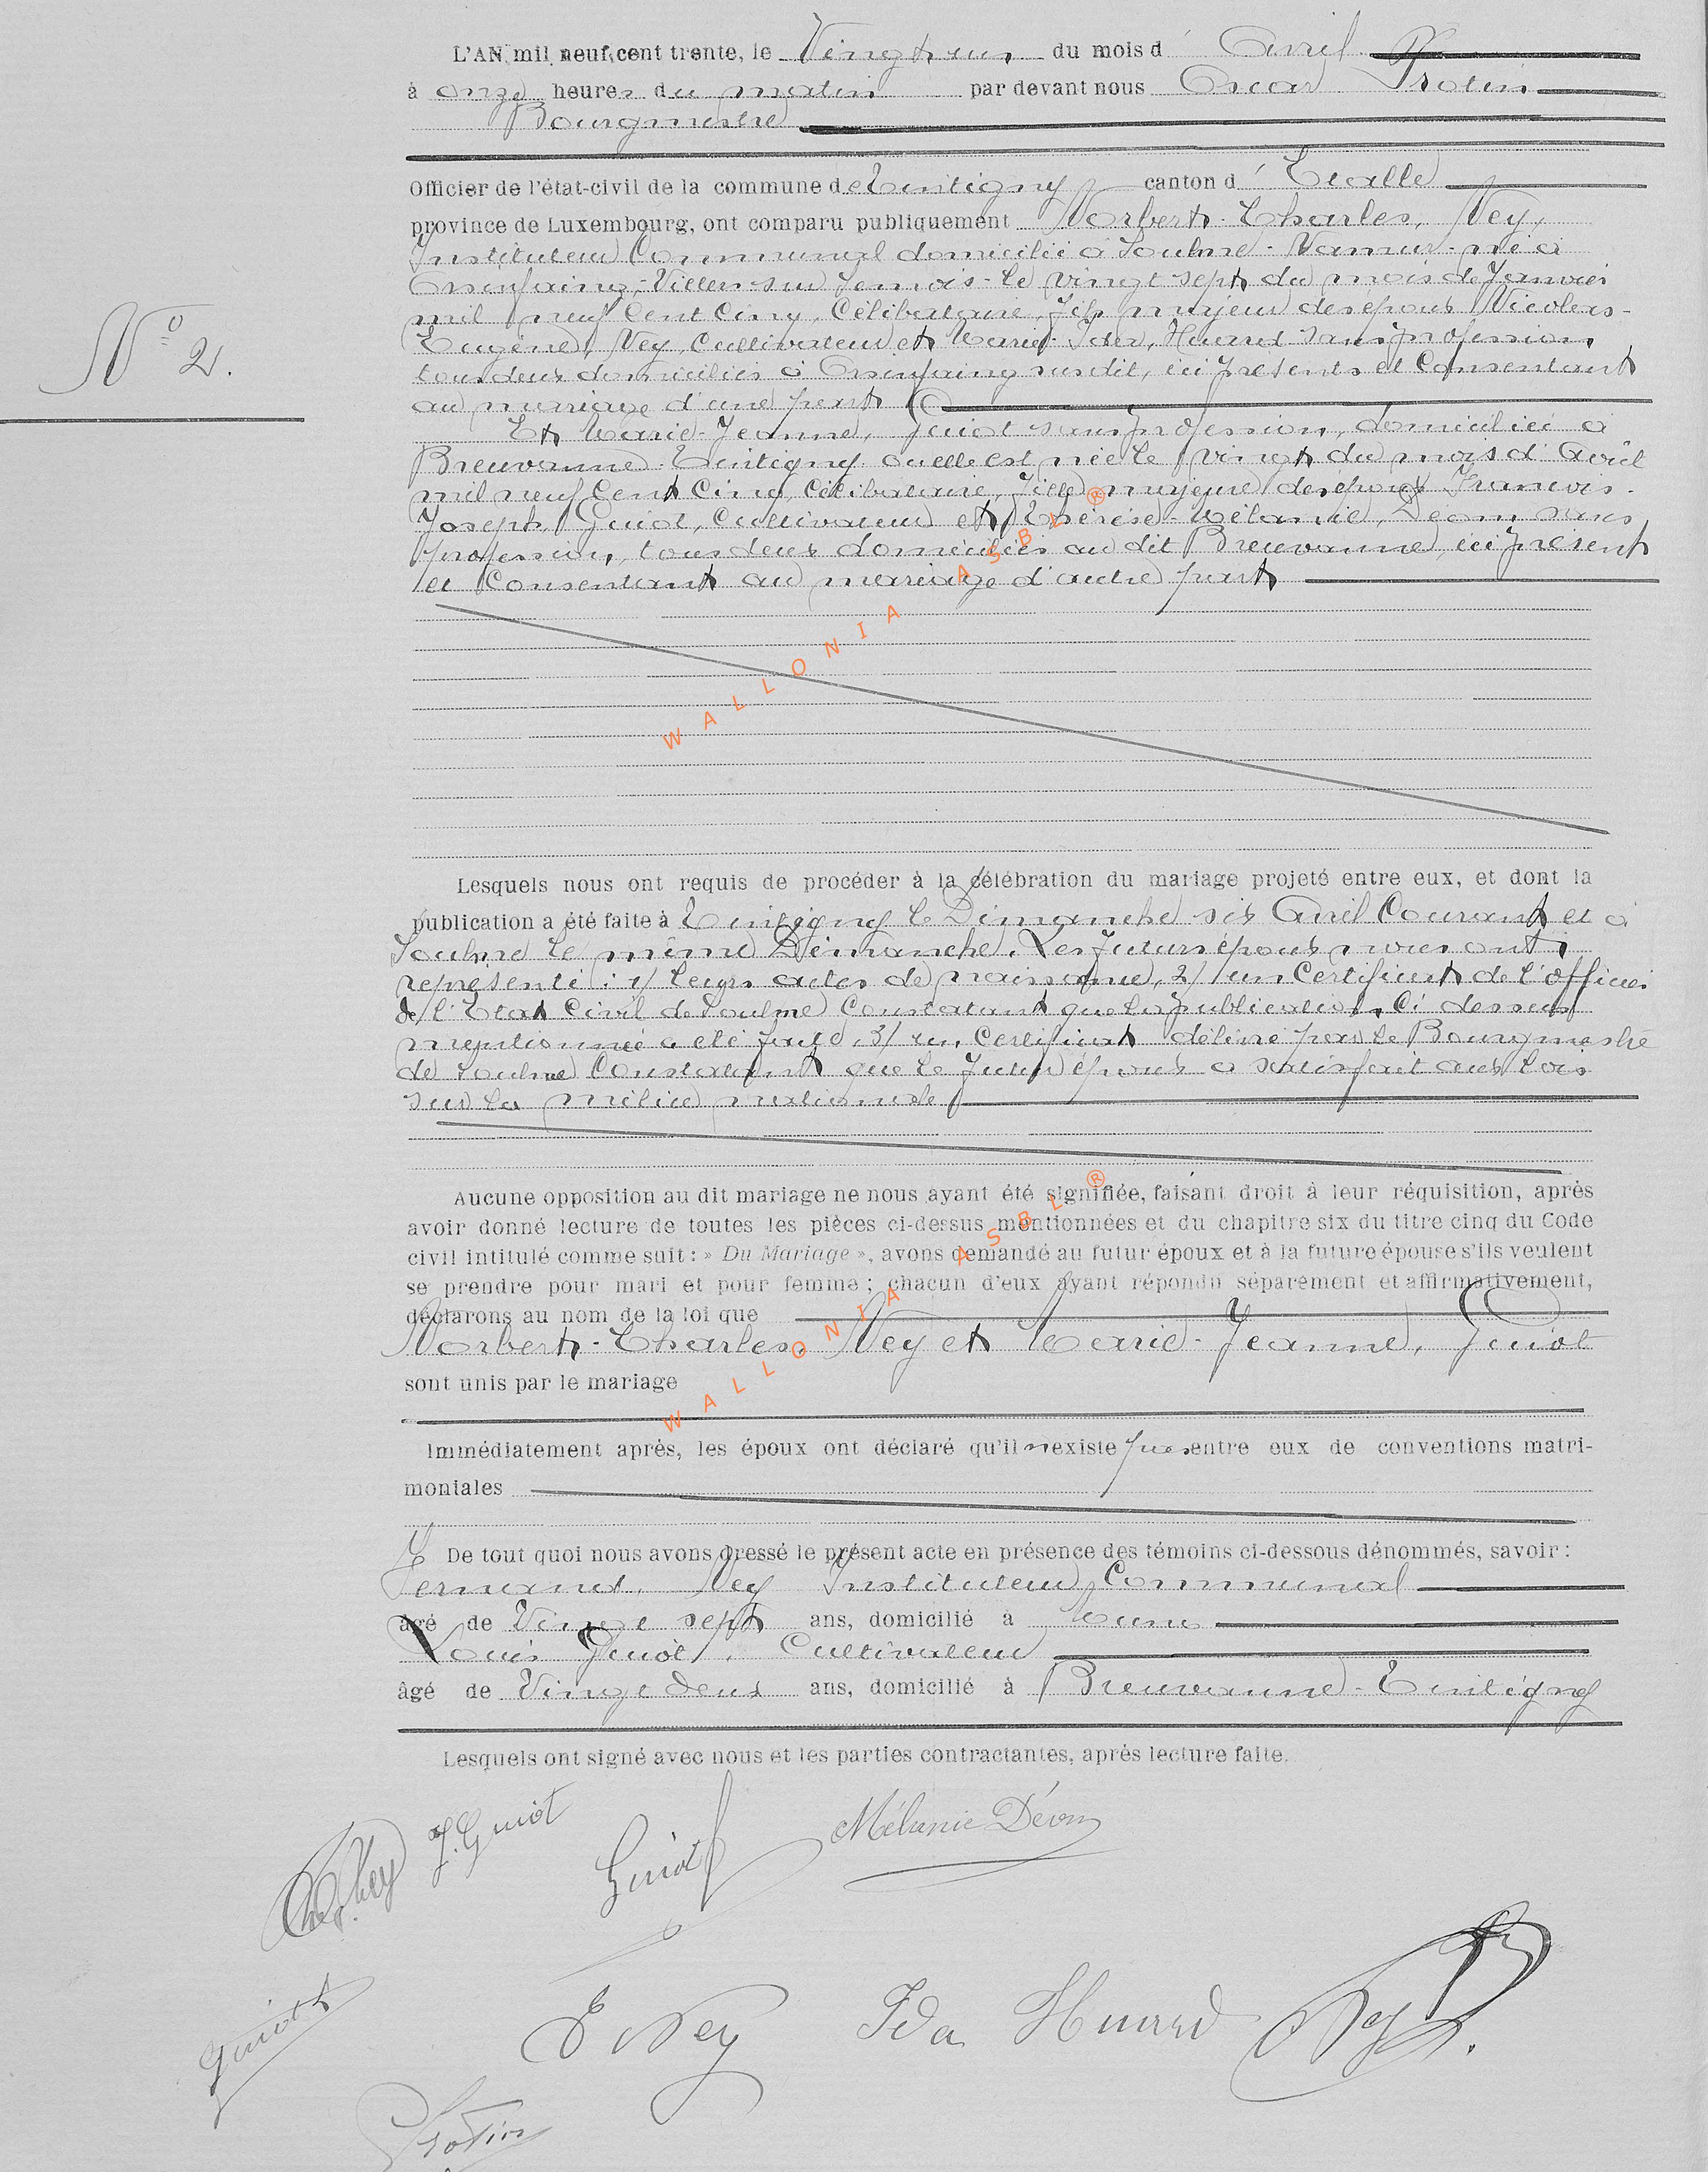 L'AN mil neuf cent trente, le Vingt un du mois d' Avril
à onze heures du matin par devant nous Oscar Protin
Bourgmestre
Officier de l'état-civil de la commune de Tintigny canton d' Etalle
province de Luxembourg, ont comparu publiquement Norbert-Charles, Ney,
Instituteur Communal domicilié à Soulme-Namur-né à
Orsinfaing-Villers sur Semois-le vingt sept du mois de Janvier
mil neuf Cent Cinq, Célibataire, fils majeur des époux Nicolas-
Eugène, Ney, Cultivateur et Marie-Ida, Huard sans profession
tous deux domiciliés à Orsinfaing susdit, ici présents et Consentant
au mariage d'une part
N° 2.
Et Marie-Jeanne, Guiot sans profession, domiciliée à
Breuvanne-Tintigny où elle est née le vingt du mois d'Avril
mil neuf Cent Cinq, Célibataire, fille majeure des époux François-
Joseph, Guiot, Cultivateur et Thérèse-Mélanie, Déom sans
profession, tous deux domiciliés au dit Breuvanne, ici présent
et Consentant au mariage d'autre part
WALLONIA ASBL ®
Lesquels nous ont requis de procéder à la célébration du mariage projeté entre eux, et dont la
publication a été faite à Tintigny le Dimanche six Avril Courant et à
Soulme le même Dimanche. Les futurs époux nous ont
représenté : 1/ leurs actes de naissance, 2/ un Certificat de l'officier
de l'Etat Civil de Soulme Constatant que la publication ci dessus
mentionnée a été faite, 3/ un Certificat délivré par le Bourgmestre
de Soulme Constatant que le futur époux a satisfait aux lois
sur la milice nationale
Aucune opposition au dit mariage ne nous ayant été signifiée, faisant droit à leur réquisition, après
avoir donné lecture de toutes les pièces ci-dessus mentionnées et du chapitre six du titre cinq du Code
civil intitulé comme suit : » Du Mariage », avons demandé au futur époux et à la future épouse s'ils veulent
se prendre pour mari et pour femme ; chacun d'eux ayant répondu séparément et affirmativement,
déclarons au nom de la loi que
Norbert-Charles, Ney et Marie-Jeanne, Guiot
sont unis par le mariage
WALLONIA ASBL ®
Immédiatement après, les époux ont déclaré qu'il n'existe pas entre eux de conventions matri-
moniales
De tout quoi nous avons dressé le présent acte en présence des témoins ci-dessous dénommés, savoir :
Fernand, Ney Instituteur Communal
âgé de Vingt sept ans, domicilié à
Louis Guiot, Cultivateur
âgé de Vingt deux ans, domicilié à Breuvanne-Tintigny
Lesquels ont signé avec nous et les parties contractantes, après lecture faite.
Ney J. Guiot Guiot Mélanie Déom
Guiot L E Ney Ida Huard Ney
Protin